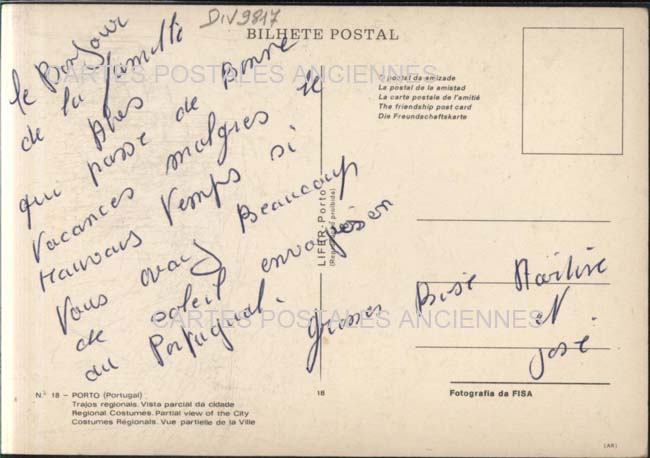 DIV9817
BILHETE POSTAL
O postal da amizade
La postal de la amistad
La carte postale de l'amitié
The friendship post card
Die Freundschaftskarte
le Bonjour
de la famille
Alves
qui passe de Bonne
Vacances malgres le
Mauvais Temps si
Vous avaiz Beaucoup
de soleil envoyés en
au Portugual.
Grosses Bise Martine
et
José
LIFER-Porto
CARTES POSTALES ANCIENNES
CARTES POSTALES ANCIENNES
N.º 18 - PORTO (Portugal)
Trajos regionais. Vista parcial da cidade
Regional Costumes. Partial view of the City
Costumes Régionals. Vue partielle de la Ville
18
Fotografia da FISA
(AR)